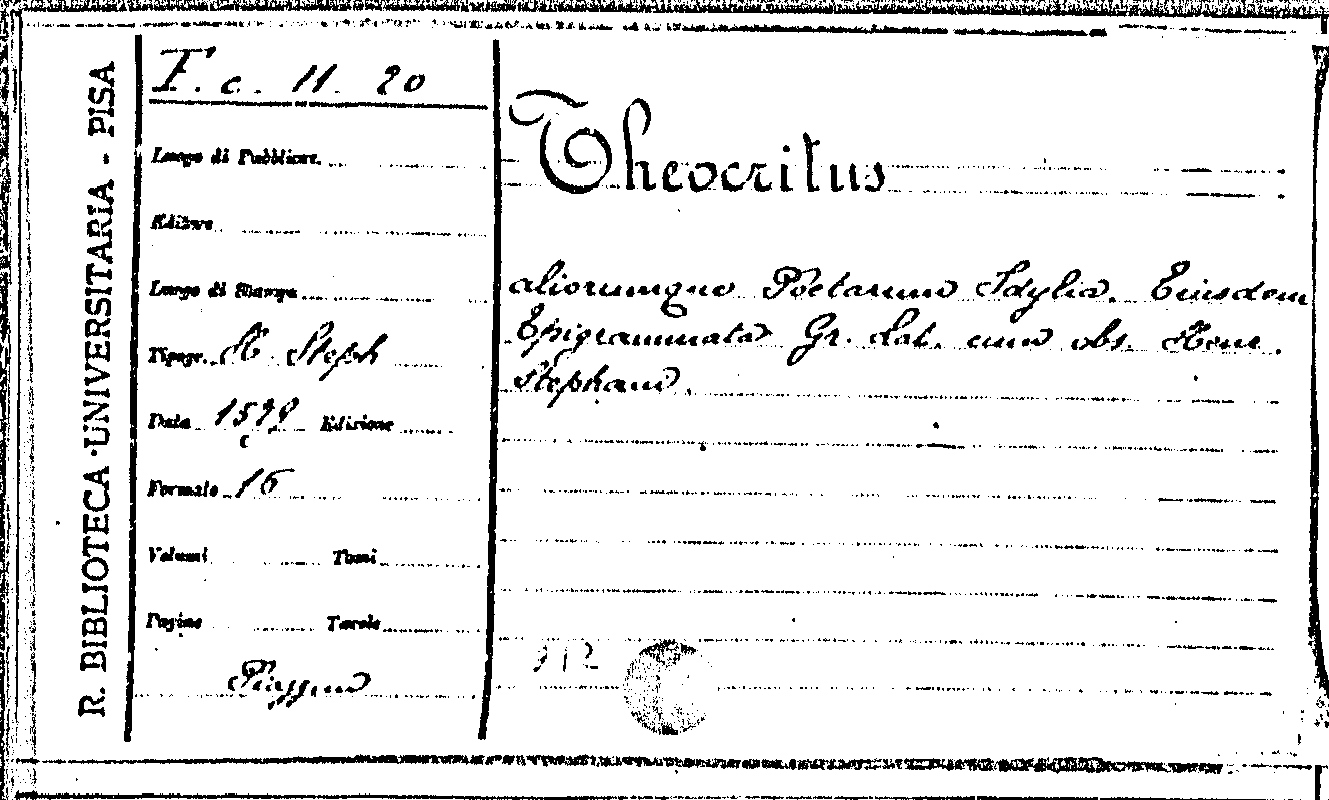 R. BIBLIOTECA UNIVERSITARIA - PISA
F. c. 11. 20
Luogo di Pubblicaz.
Editore
Luogo di Stampa
Tipogr. H. Steph
Data 1579 Edizione
Formato 16
Volumi Tomi
Pagine Tavole
Theocritus
aliorumque Poetarum Idylia. Eiusdem
Epigrammata Gr. Lat. cum obs. Henr.
Stephani.
912